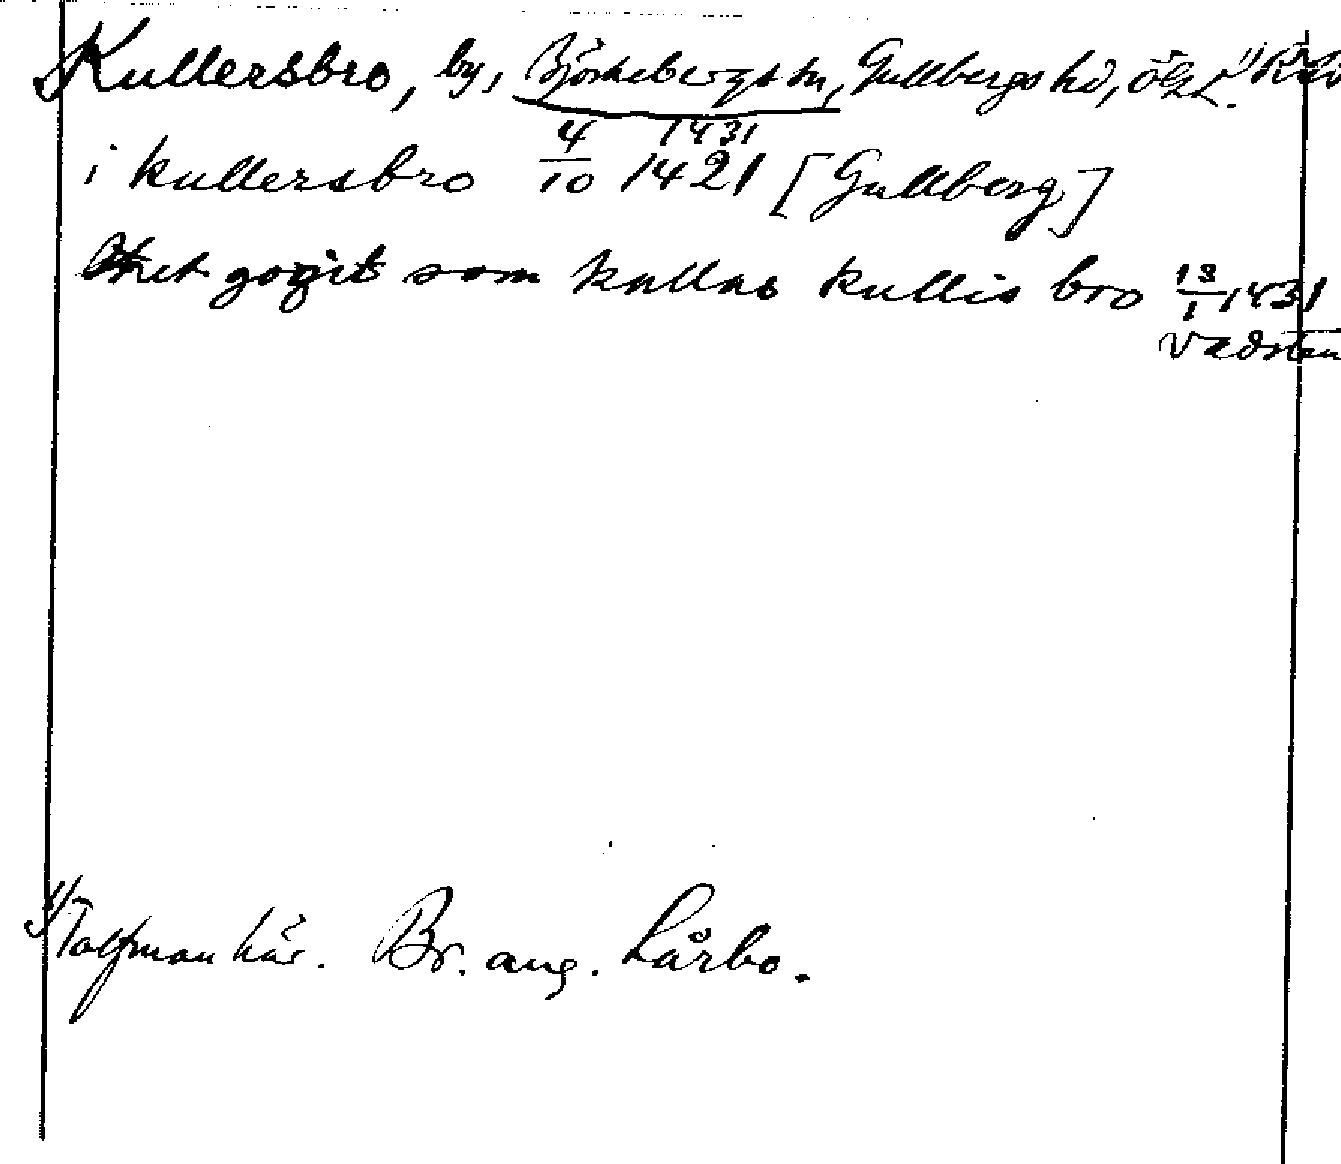 Kullersbro, by, Björkebergs sn, Gullbergs hd, Ögl. 1)
i kullersbro 4/10 1421 1431 [Gullberg]
som kallas kullis bro 13/1 1431
Vadsten
1) Tolfman här. Br. ang. Lårbo.